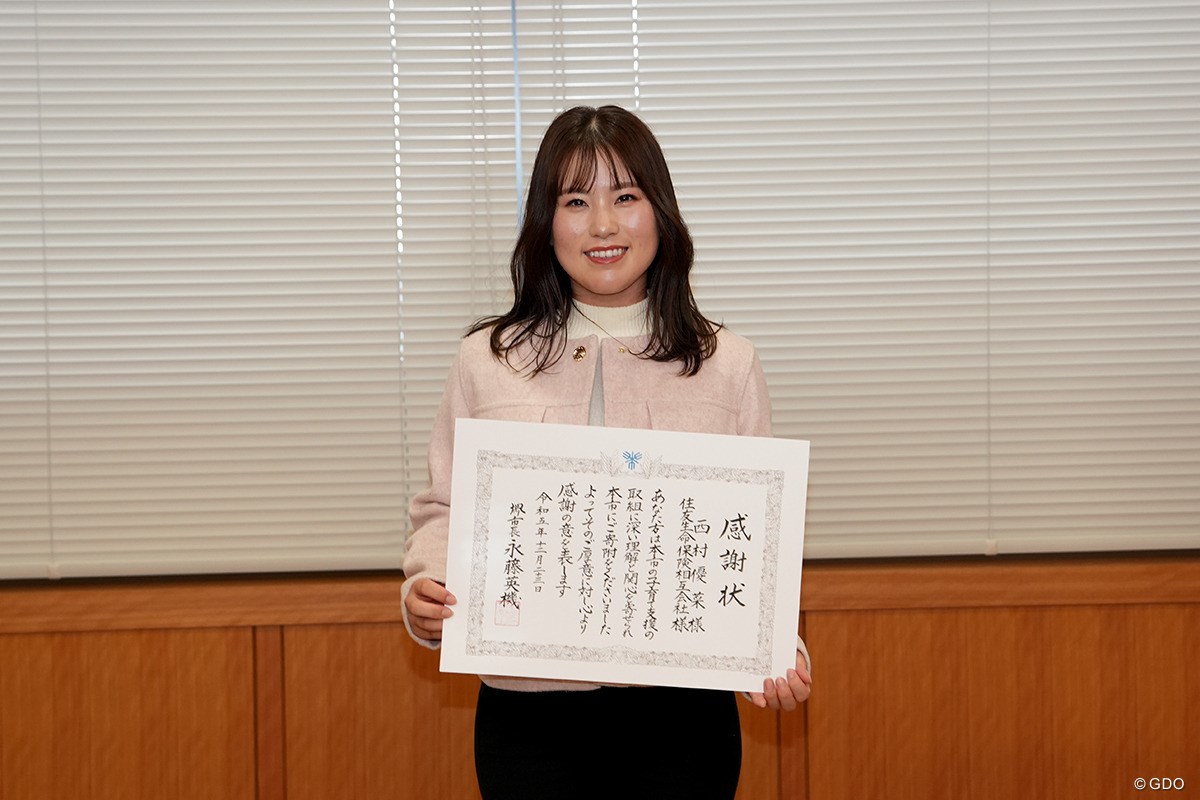 感謝状
西村優菜様
住友生命保険相互会社様
あなた方は本市の子育て支援の
取組に深い理解と関心を寄せられ
本市にご寄附をくださいました
よってそのご厚意に対し心より
感謝の意を表します
令和五年十二月二十三日
堺市長 永藤英機
© GDO